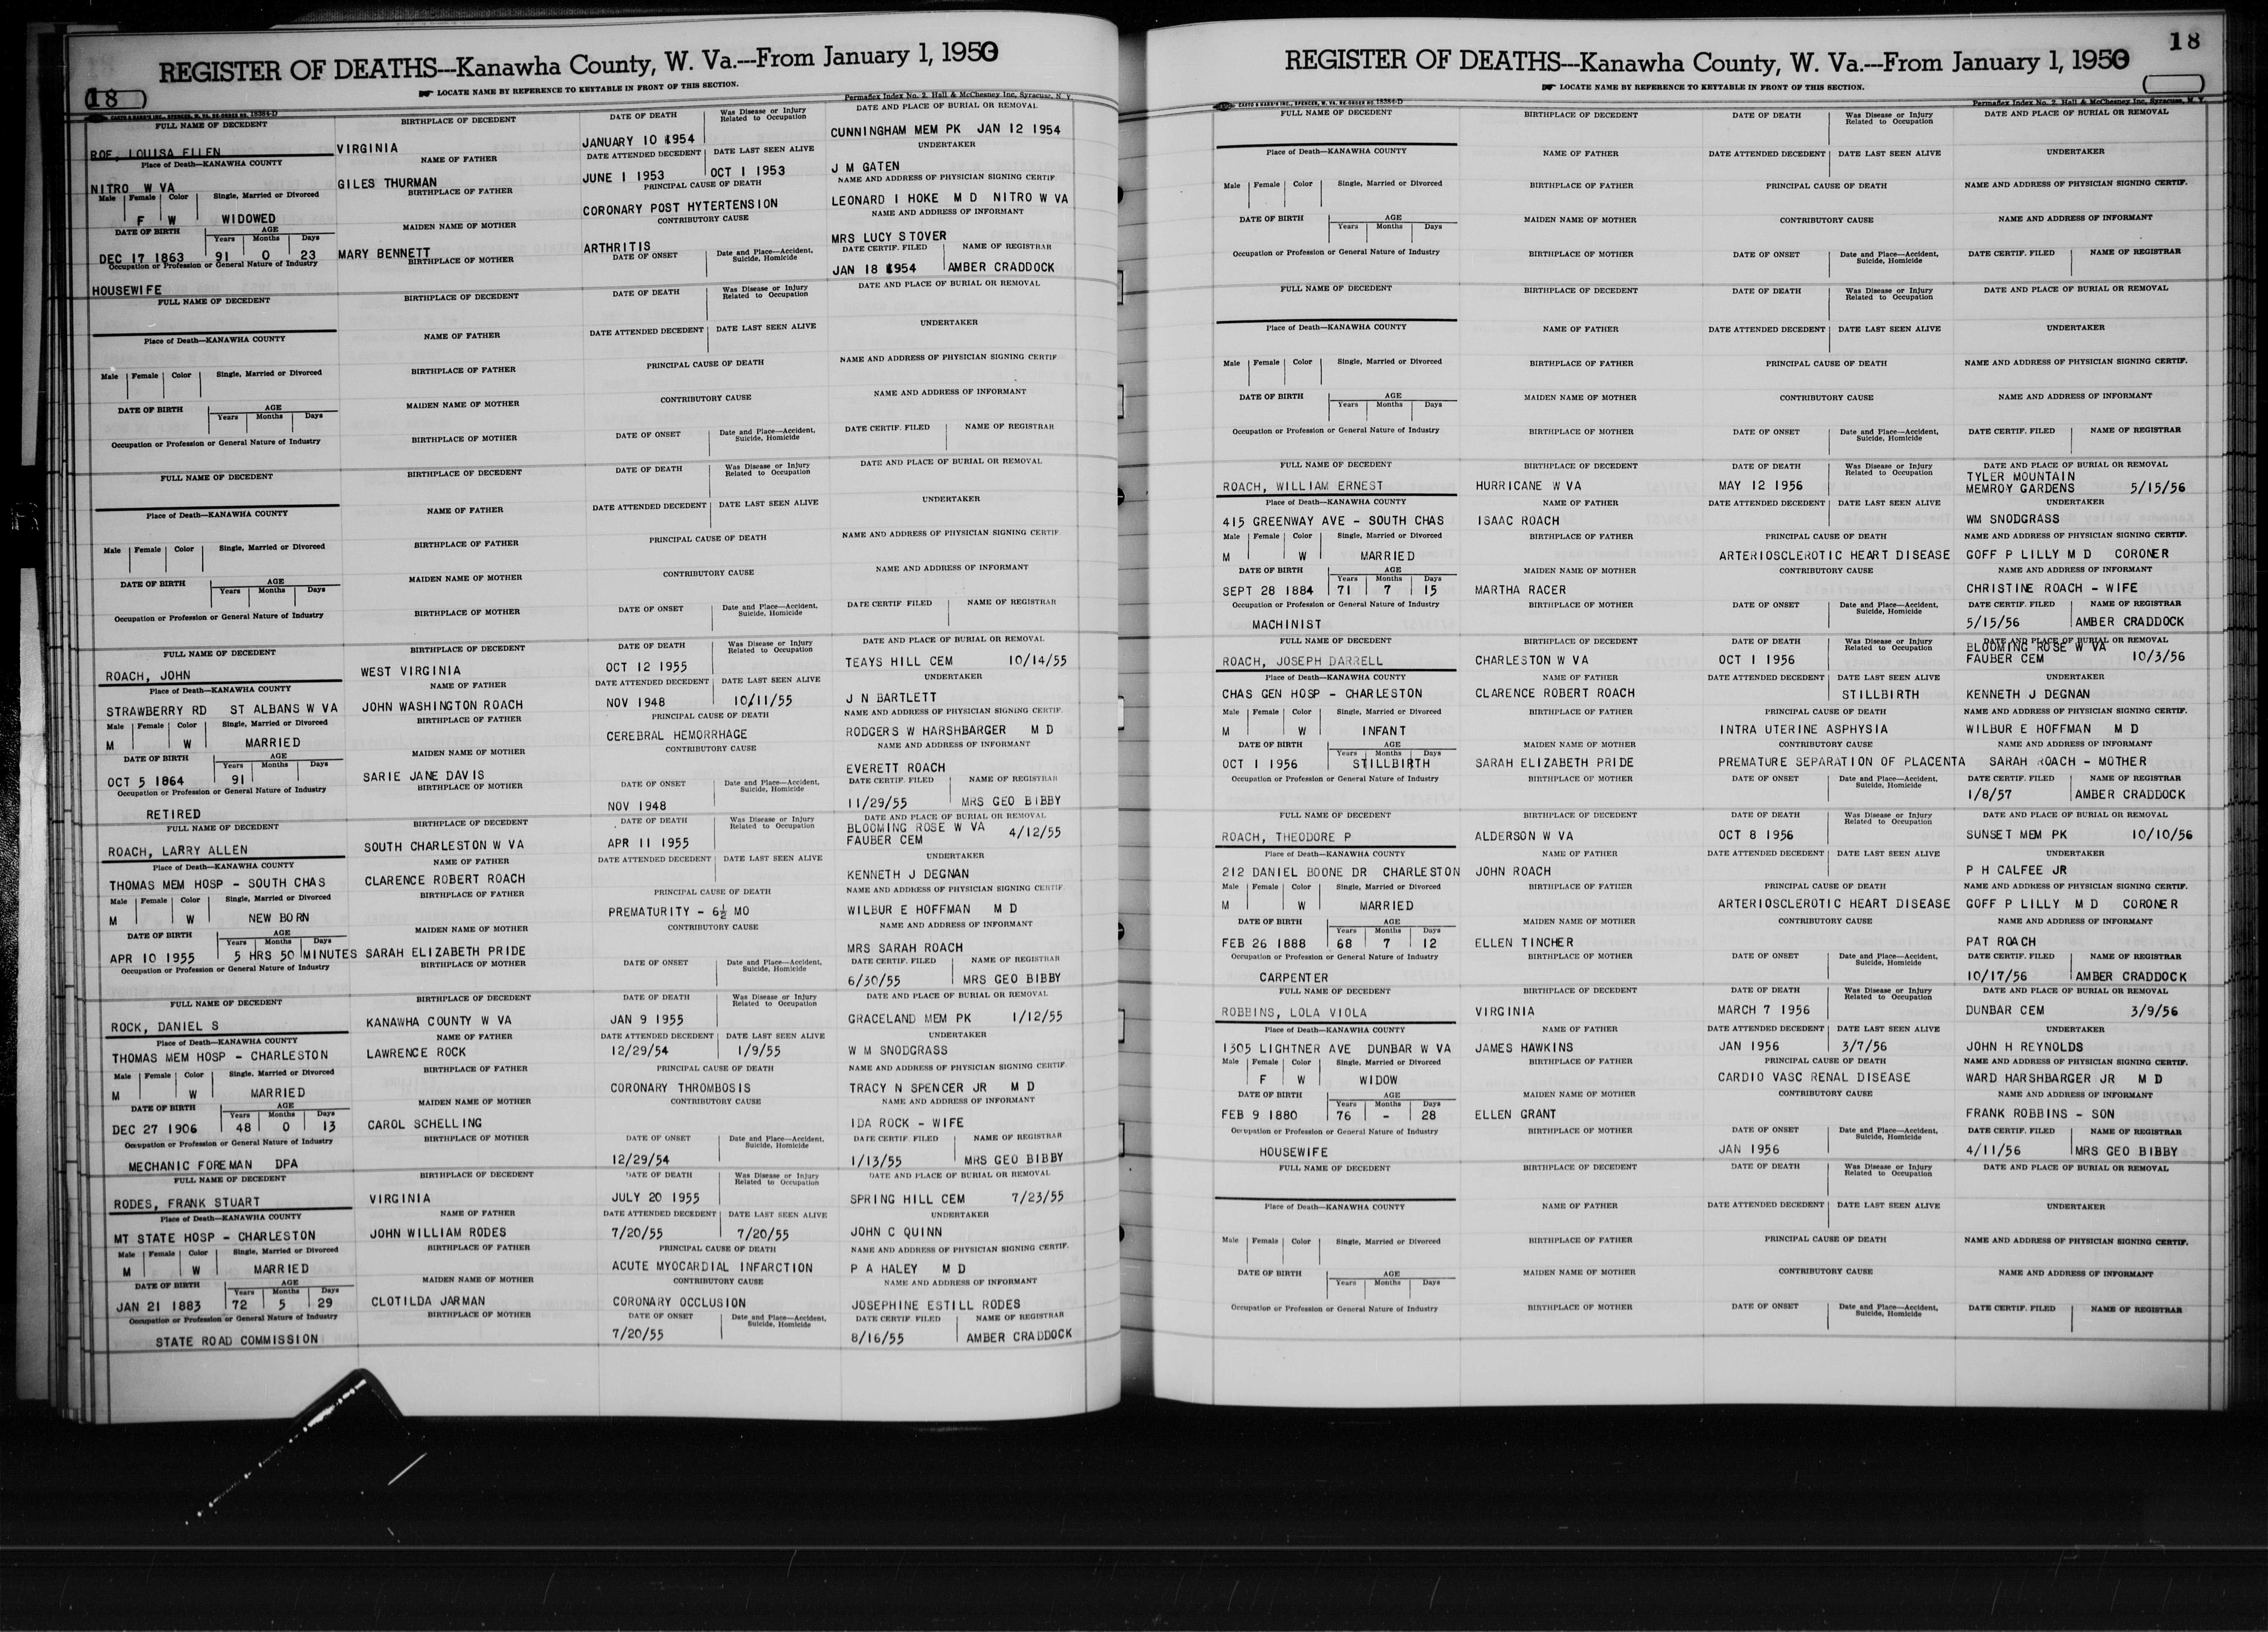 REGISTER OF DEATHS---Kanawha County, W. Va.---From January 1, 1950
18
☛ LOCATE NAME BY REFERENCE TO KEYTABLE IN FRONT OF THIS SECTION.
CASTO & HARRIS INC., SPENCER, W. VA. RE-ORDER NO. 18384-D
Permaflex Index No. 2, Hall & McChesney Inc, Syracuse, N. Y.
FULL NAME OF DECEDENT BIRTHPLACE OF DECEDENT DATE OF DEATH Was Disease or Injury Related to Occupation DATE AND PLACE OF BURIAL OR REMOVAL
ROE, LOUISA ELLEN VIRGINIA JANUARY 10 1954 CUNNINGHAM MEM PK JAN 12 1954
Place of Death—KANAWHA COUNTY NAME OF FATHER DATE ATTENDED DECEDENT DATE LAST SEEN ALIVE UNDERTAKER
NITRO W VA GILES THURMAN JUNE 1 1953 OCT 1 1953 J M GATEN
Male Female Color Single, Married or Divorced BIRTHPLACE OF FATHER PRINCIPAL CAUSE OF DEATH NAME AND ADDRESS OF PHYSICIAN SIGNING CERTIF
F W WIDOWED CORONARY POST HYTERTENSION LEONARD I HOKE M D NITRO W VA
DATE OF BIRTH AGE Years Months Days MAIDEN NAME OF MOTHER CONTRIBUTORY CAUSE NAME AND ADDRESS OF INFORMANT
DEC 17 1863 91 0 23 MARY BENNETT ARTHRITIS MRS LUCY STOVER
Occupation or Profession or General Nature of Industry BIRTHPLACE OF MOTHER DATE OF ONSET Date and Place—Accident, Suicide, Homicide DATE CERTIF. FILED NAME OF REGISTRAR
HOUSEWIFE JAN 18 1954 AMBER CRADDOCK
FULL NAME OF DECEDENT BIRTHPLACE OF DECEDENT DATE OF DEATH Was Disease or Injury Related to Occupation DATE AND PLACE OF BURIAL OR REMOVAL
Place of Death—KANAWHA COUNTY NAME OF FATHER DATE ATTENDED DECEDENT DATE LAST SEEN ALIVE UNDERTAKER
Male Female Color Single, Married or Divorced BIRTHPLACE OF FATHER PRINCIPAL CAUSE OF DEATH NAME AND ADDRESS OF PHYSICIAN SIGNING CERTIF
DATE OF BIRTH AGE Years Months Days MAIDEN NAME OF MOTHER CONTRIBUTORY CAUSE NAME AND ADDRESS OF INFORMANT
Occupation or Profession or General Nature of Industry BIRTHPLACE OF MOTHER DATE OF ONSET Date and Place—Accident, Suicide, Homicide DATE CERTIF. FILED NAME OF REGISTRAR
FULL NAME OF DECEDENT BIRTHPLACE OF DECEDENT DATE OF DEATH Was Disease or Injury Related to Occupation DATE AND PLACE OF BURIAL OR REMOVAL
Place of Death—KANAWHA COUNTY NAME OF FATHER DATE ATTENDED DECEDENT DATE LAST SEEN ALIVE UNDERTAKER
Male Female Color Single, Married or Divorced BIRTHPLACE OF FATHER PRINCIPAL CAUSE OF DEATH NAME AND ADDRESS OF PHYSICIAN SIGNING CERTIF
DATE OF BIRTH AGE Years Months Days MAIDEN NAME OF MOTHER CONTRIBUTORY CAUSE NAME AND ADDRESS OF INFORMANT
Occupation or Profession or General Nature of Industry BIRTHPLACE OF MOTHER DATE OF ONSET Date and Place—Accident, Suicide, Homicide DATE CERTIF FILED NAME OF REGISTRAR
FULL NAME OF DECEDENT BIRTHPLACE OF DECEDENT DATE OF DEATH Was Disease or Injury Related to Occupation DATE AND PLACE OF BURIAL OR REMOVAL
ROACH, JOHN WEST VIRGINIA OCT 12 1955 TEAYS HILL CEM 10/14/55
Place of Death—KANAWHA COUNTY NAME OF FATHER DATE ATTENDED DECEDENT DATE LAST SEEN ALIVE UNDERTAKER
STRAWBERRY RD ST ALBANS W VA JOHN WASHINGTON ROACH NOV 1948 10/11/55 J N BARTLETT
Male Female Color Single, Married or Divorced BIRTHPLACE OF FATHER PRINCIPAL CAUSE OF DEATH NAME AND ADDRESS OF PHYSICIAN SIGNING CERTIF.
M W MARRIED CEREBRAL HEMORRHAGE RODGERS W HARSHBARGER M D
DATE OF BIRTH AGE Years Months Days MAIDEN NAME OF MOTHER CONTRIBUTORY CAUSE NAME AND ADDRESS OF INFORMANT
OCT 5 1864 91 SARIE JANE DAVIS EVERETT ROACH
Occupation or Profession or General Nature of Industry BIRTHPLACE OF MOTHER DATE OF ONSET Date and Place—Accident, Suicide, Homicide DATE CERTIF. FILED NAME OF REGISTRAR
RETIRED NOV 1948 11/29/55 MRS GEO BIBBY
FULL NAME OF DECEDENT BIRTHPLACE OF DECEDENT DATE OF DEATH Was Disease or Injury Related to Occupation DATE AND PLACE OF BURIAL OR REMOVAL
ROACH, LARRY ALLEN SOUTH CHARLESTON W VA APR 11 1955 BLOOMING ROSE W VA FAUBER CEM 4/12/55
Place of Death—KANAWHA COUNTY NAME OF FATHER DATE ATTENDED DECEDENT DATE LAST SEEN ALIVE UNDERTAKER
THOMAS MEM HOSP – SOUTH CHAS CLARENCE ROBERT ROACH KENNETH J DEGNAN
Male Female Color Single, Married or Divorced BIRTHPLACE OF FATHER PRINCIPAL CAUSE OF DEATH NAME AND ADDRESS OF PHYSICIAN SIGNING CERTIF.
M W NEW BORN PREMATURITY – 6½ MO WILBUR E HOFFMAN M D
DATE OF BIRTH AGE Years Months Days MAIDEN NAME OF MOTHER CONTRIBUTORY CAUSE NAME AND ADDRESS OF INFORMANT
APR 10 1955 5 HRS 50 MINUTES SARAH ELIZABETH PRIDE MRS SARAH ROACH
Occupation or Profession or General Nature of Industry BIRTHPLACE OF MOTHER DATE OF ONSET Date and Place—Accident, Suicide, Homicide DATE CERTIF. FILED NAME OF REGISTRAR
6/30/55 MRS GEO BIBBY
FULL NAME OF DECEDENT BIRTHPLACE OF DECEDENT DATE OF DEATH Was Disease or Injury Related to Occupation DATE AND PLACE OF BURIAL OR REMOVAL
ROCK, DANIEL S KANAWHA COUNTY W VA JAN 9 1955 GRACELAND MEM PK 1/12/55
Place of Death—KANAWHA COUNTY NAME OF FATHER DATE ATTENDED DECEDENT DATE LAST SEEN ALIVE UNDERTAKER
THOMAS MEM HOSP – CHARLESTON LAWRENCE ROCK 12/29/54 1/9/55 W M SNODGRASS
Male Female Color Single, Married or Divorced BIRTHPLACE OF FATHER PRINCIPAL CAUSE OF DEATH NAME AND ADDRESS OF PHYSICIAN SIGNING CERTIF.
M W MARRIED CORONARY THROMBOSIS TRACY N SPENCER JR M D
DATE OF BIRTH AGE Years Months Days MAIDEN NAME OF MOTHER CONTRIBUTORY CAUSE NAME AND ADDRESS OF INFORMANT
DEC 27 1906 48 0 13 CAROL SCHELLING IDA ROCK – WIFE
Occupation or Profession or General Nature of Industry BIRTHPLACE OF MOTHER DATE OF ONSET Date and Place—Accident, Suicide, Homicide DATE CERTIF. FILED NAME OF REGISTRAR
MECHANIC FOREMAN DPA 12/29/54 1/13/55 MRS GEO BIBBY
FULL NAME OF DECEDENT BIRTHPLACE OF DECEDENT DATE OF DEATH Was Disease or Injury Related to Occupation DATE AND PLACE OF BURIAL OR REMOVAL
RODES, FRANK STUART VIRGINIA JULY 20 1955 SPRING HILL CEM 7/23/55
Place of Death—KANAWHA COUNTY NAME OF FATHER DATE ATTENDED DECEDENT DATE LAST SEEN ALIVE UNDERTAKER
MT STATE HOSP – CHARLESTON JOHN WILLIAM RODES 7/20/55 7/20/55 JOHN C QUINN
Male Female Color Single, Married or Divorced BIRTHPLACE OF FATHER PRINCIPAL CAUSE OF DEATH NAME AND ADDRESS OF PHYSICIAN SIGNING CERTIF.
M W MARRIED ACUTE MYOCARDIAL INFARCTION P A HALEY M D
DATE OF BIRTH AGE Years Months Days MAIDEN NAME OF MOTHER CONTRIBUTORY CAUSE NAME AND ADDRESS OF INFORMANT
JAN 21 1883 72 5 29 CLOTILDA JARMAN CORONARY OCCLUSION JOSEPHINE ESTILL RODES
Occupation or Profession or General Nature of Industry BIRTHPLACE OF MOTHER DATE OF ONSET Date and Place—Accident, Suicide, Homicide DATE CERTIF. FILED NAME OF REGISTRAR
STATE ROAD COMMISSION 7/20/55 8/16/55 AMBER CRADDOCK
18
REGISTER OF DEATHS---Kanawha County, W. Va.---From January 1, 1950
☛ LOCATE NAME BY REFERENCE TO KEYTABLE IN FRONT OF THIS SECTION.
CASTO & HARRIS INC., SPENCER, W. VA. RE-ORDER NO. 18384-D
Permaflex Index No. 2, Hall & McChesney Inc, Syracuse, N. Y.
FULL NAME OF DECEDENT BIRTHPLACE OF DECEDENT DATE OF DEATH Was Disease or Injury Related to Occupation DATE AND PLACE OF BURIAL OR REMOVAL
Place of Death—KANAWHA COUNTY NAME OF FATHER DATE ATTENDED DECEDENT DATE LAST SEEN ALIVE UNDERTAKER
Male Female Color Single, Married or Divorced BIRTHPLACE OF FATHER PRINCIPAL CAUSE OF DEATH NAME AND ADDRESS OF PHYSICIAN SIGNING CERTIF.
DATE OF BIRTH AGE Years Months Days MAIDEN NAME OF MOTHER CONTRIBUTORY CAUSE NAME AND ADDRESS OF INFORMANT
Occupation or Profession or General Nature of Industry BIRTHPLACE OF MOTHER DATE OF ONSET Date and Place—Accident, Suicide, Homicide DATE CERTIF. FILED NAME OF REGISTRAR
FULL NAME OF DECEDENT BIRTHPLACE OF DECEDENT DATE OF DEATH Was Disease or Injury Related to Occupation DATE AND PLACE OF BURIAL OR REMOVAL
Place of Death—KANAWHA COUNTY NAME OF FATHER DATE ATTENDED DECEDENT DATE LAST SEEN ALIVE UNDERTAKER
Male Female Color Single, Married or Divorced BIRTHPLACE OF FATHER PRINCIPAL CAUSE OF DEATH NAME AND ADDRESS OF PHYSICIAN SIGNING CERTIF.
DATE OF BIRTH AGE Years Months Days MAIDEN NAME OF MOTHER CONTRIBUTORY CAUSE NAME AND ADDRESS OF INFORMANT
Occupation or Profession or General Nature of Industry BIRTHPLACE OF MOTHER DATE OF ONSET Date and Place—Accident, Suicide, Homicide DATE CERTIF. FILED NAME OF REGISTRAR
FULL NAME OF DECEDENT BIRTHPLACE OF DECEDENT DATE OF DEATH Was Disease or Injury Related to Occupation DATE AND PLACE OF BURIAL OR REMOVAL
ROACH, WILLIAM ERNEST HURRICANE W VA MAY 12 1956 TYLER MOUNTAIN MEMROY GARDENS 5/15/56
Place of Death—KANAWHA COUNTY NAME OF FATHER DATE ATTENDED DECEDENT DATE LAST SEEN ALIVE UNDERTAKER
415 GREENWAY AVE – SOUTH CHAS ISAAC ROACH WM SNODGRASS
Male Female Color Single, Married or Divorced BIRTHPLACE OF FATHER PRINCIPAL CAUSE OF DEATH NAME AND ADDRESS OF PHYSICIAN SIGNING CERTIF.
M W MARRIED ARTERIOSCLEROTIC HEART DISEASE GOFF P LILLY M D CORONER
DATE OF BIRTH AGE Years Months Days MAIDEN NAME OF MOTHER CONTRIBUTORY CAUSE NAME AND ADDRESS OF INFORMANT
SEPT 28 1884 71 7 15 MARTHA RACER CHRISTINE ROACH – WIFE
Occupation or Profession or General Nature of Industry BIRTHPLACE OF MOTHER DATE OF ONSET Date and Place—Accident, Suicide, Homicide DATE CERTIF. FILED NAME OF REGISTRAR
MACHINIST 5/15/56 AMBER CRADDOCK
FULL NAME OF DECEDENT BIRTHPLACE OF DECEDENT DATE OF DEATH Was Disease or Injury Related to Occupation DATE AND PLACE OF BURIAL OR REMOVAL
ROACH, JOSEPH DARRELL CHARLESTON W VA OCT 1 1956 BLOOMING ROSE W VA FAUBER CEM 10/3/56
Place of Death—KANAWHA COUNTY NAME OF FATHER DATE ATTENDED DECEDENT DATE LAST SEEN ALIVE UNDERTAKER
CHAS GEN HOSP – CHARLESTON CLARENCE ROBERT ROACH STILLBIRTH KENNETH J DEGNAN
Male Female Color Single, Married or Divorced BIRTHPLACE OF FATHER PRINCIPAL CAUSE OF DEATH NAME AND ADDRESS OF PHYSICIAN SIGNING CERTIF.
M W INFANT INTRA UTERINE ASPHYSIA WILBUR E HOFFMAN M D
DATE OF BIRTH AGE Years Months Days MAIDEN NAME OF MOTHER CONTRIBUTORY CAUSE NAME AND ADDRESS OF INFORMANT
OCT 1 1956 STILLBIRTH SARAH ELIZABETH PRIDE PREMATURE SEPARATION OF PLACENTA SARAH ROACH – MOTHER
Occupation or Profession or General Nature of Industry BIRTHPLACE OF MOTHER DATE OF ONSET Date and Place—Accident, Suicide, Homicide DATE CERTIF. FILED NAME OF REGISTRAR
1/8/57 AMBER CRADDOCK
FULL NAME OF DECEDENT BIRTHPLACE OF DECEDENT DATE OF DEATH Was Disease or Injury Related to Occupation DATE AND PLACE OF BURIAL OR REMOVAL
ROACH, THEODORE P ALDERSON W VA OCT 8 1956 SUNSET MEM PK 10/10/56
Place of Death—KANAWHA COUNTY NAME OF FATHER DATE ATTENDED DECEDENT DATE LAST SEEN ALIVE UNDERTAKER
212 DANIEL BOONE DR CHARLESTON JOHN ROACH P H CALFEE JR
Male Female Color Single, Married or Divorced BIRTHPLACE OF FATHER PRINCIPAL CAUSE OF DEATH NAME AND ADDRESS OF PHYSICIAN SIGNING CERTIF.
M W MARRIED ARTERIOSCLEROTIC HEART DISEASE GOFF P LILLY M D CORONER
DATE OF BIRTH AGE Years Months Days MAIDEN NAME OF MOTHER CONTRIBUTORY CAUSE NAME AND ADDRESS OF INFORMANT
FEB 26 1888 68 7 12 ELLEN TINCHER PAT ROACH
Occupation or Profession or General Nature of Industry BIRTHPLACE OF MOTHER DATE OF ONSET Date and Place—Accident, Suicide, Homicide DATE CERTIF. FILED NAME OF REGISTRAR
CARPENTER 10/17/56 AMBER CRADDOCK
FULL NAME OF DECEDENT BIRTHPLACE OF DECEDENT DATE OF DEATH Was Disease or Injury Related to Occupation DATE AND PLACE OF BURIAL OR REMOVAL
ROBBINS, LOLA VIOLA VIRGINIA MARCH 7 1956 DUNBAR CEM 3/9/56
Place of Death—KANAWHA COUNTY NAME OF FATHER DATE ATTENDED DECEDENT DATE LAST SEEN ALIVE UNDERTAKER
1305 LIGHTNER AVE DUNBAR W VA JAMES HAWKINS JAN 1956 3/7/56 JOHN H REYNOLDS
Male Female Color Single, Married or Divorced BIRTHPLACE OF FATHER PRINCIPAL CAUSE OF DEATH NAME AND ADDRESS OF PHYSICIAN SIGNING CERTIF.
F W WIDOW CARDIO VASC RENAL DISEASE WARD HARSHBARGER JR M D
DATE OF BIRTH AGE Years Months Days MAIDEN NAME OF MOTHER CONTRIBUTORY CAUSE NAME AND ADDRESS OF INFORMANT
FEB 9 1880 76 – 28 ELLEN GRANT FRANK ROBBINS – SON
Occupation or Profession or General Nature of Industry BIRTHPLACE OF MOTHER DATE OF ONSET Date and Place—Accident, Suicide, Homicide DATE CERTIF. FILED NAME OF REGISTRAR
HOUSEWIFE JAN 1956 4/11/56 MRS GEO BIBBY
FULL NAME OF DECEDENT BIRTHPLACE OF DECEDENT DATE OF DEATH Was Disease or Injury Related to Occupation DATE AND PLACE OF BURIAL OR REMOVAL
Place of Death—KANAWHA COUNTY NAME OF FATHER DATE ATTENDED DECEDENT DATE LAST SEEN ALIVE UNDERTAKER
Male Female Color Single, Married or Divorced BIRTHPLACE OF FATHER PRINCIPAL CAUSE OF DEATH NAME AND ADDRESS OF PHYSICIAN SIGNING CERTIF.
DATE OF BIRTH AGE Years Months Days MAIDEN NAME OF MOTHER CONTRIBUTORY CAUSE NAME AND ADDRESS OF INFORMANT
Occupation or Profession or General Nature of Industry BIRTHPLACE OF MOTHER DATE OF ONSET Date and Place—Accident, Suicide, Homicide DATE CERTIF. FILED NAME OF REGISTRAR